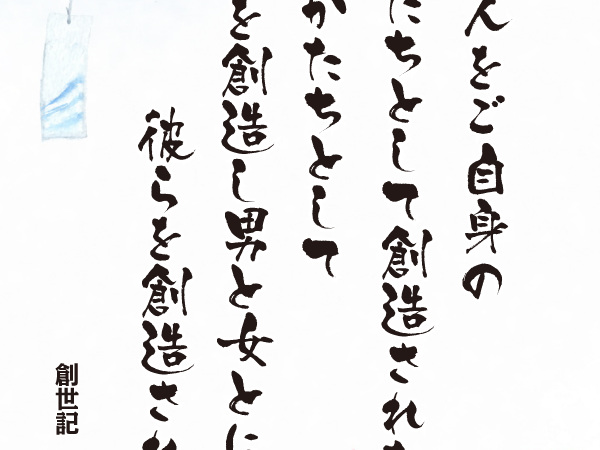 人をご自身の
たちとして創造された
かたちとして
を創造し男と女とに
彼らを創造され
創世記